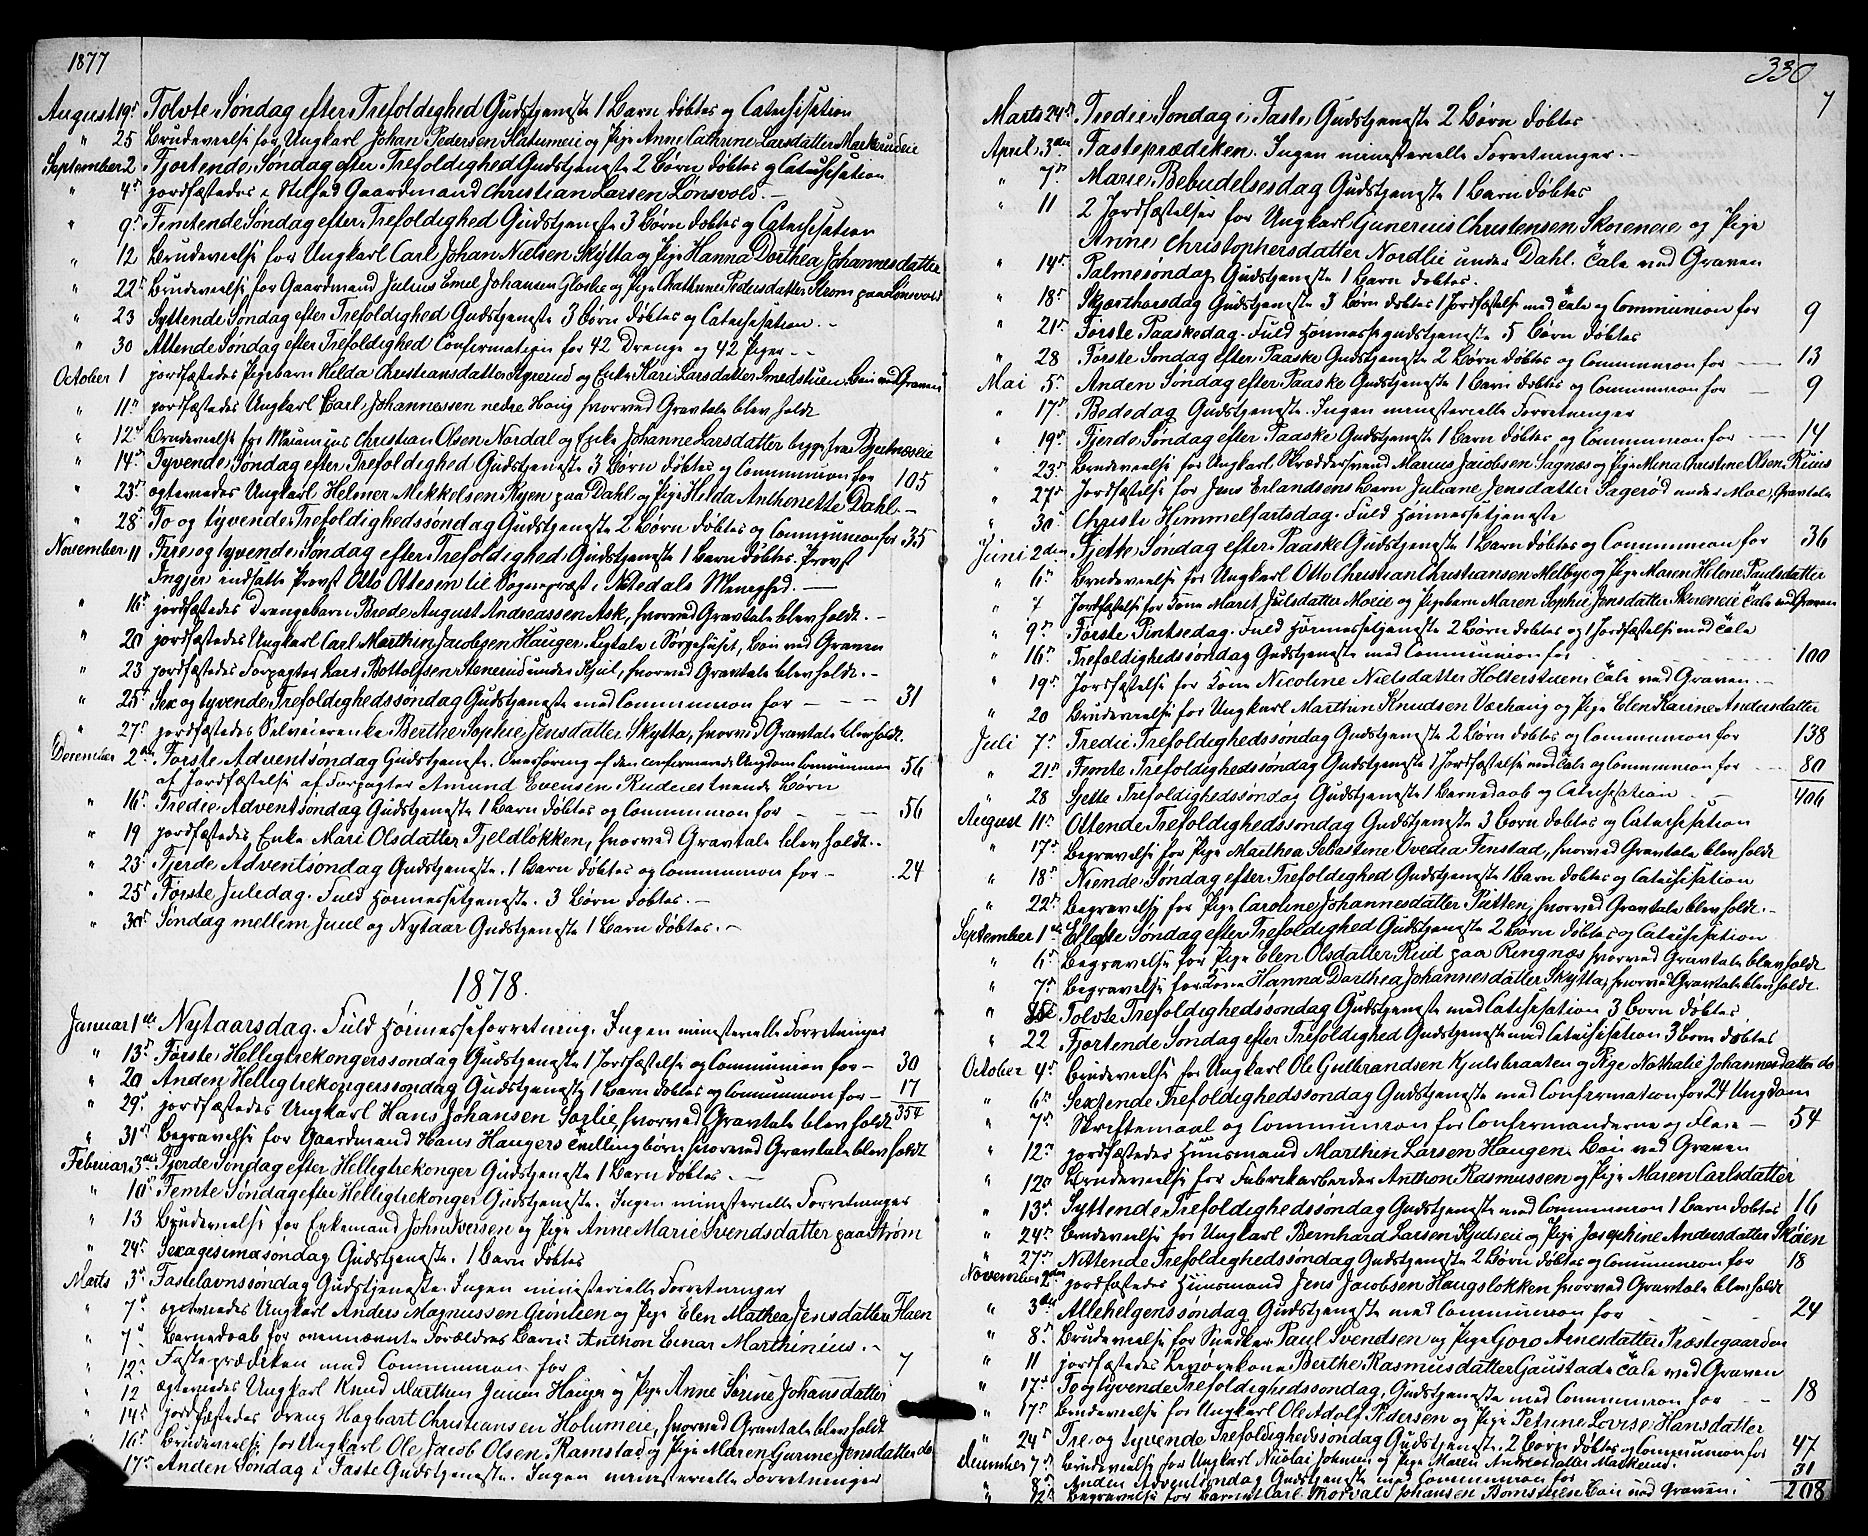 1877
August 19d Tolvte Søndag efter Trefoldighed Gudstjeneste 1 Barn døbtes og Catechisation
" 25 Brudevielse for Ungkarl Johan Pedersen og Pige Anne Cathrine Larsdatter
September 2 Fjortende Søndag efter Trefoldighed Gudstjeneste 2 Børn døbtes og Catechisation
" 4d jordfæstedes i Gaardmand Christian Larsen Lønsvold.
" 9d Femtende Søndag efter Trefoldighed Gudstjeneste 3 Børn døbtes og Catechisation
" 12 Brudevielse for Ungkarl Carl Johan Nielsen Skytta og Pige Hanna Dorthea Johannesdatter
" 22d Brudevielse for Gaardmand Julius Emil Johansen og Pige Cathrine Pedersdatter Strøm paa Lønsvold
" 23 Syttende Søndag efter Trefoldighed Gudstjeneste 3 Børn døbtes og Catechisation. -
" 30 Attende Søndag efter Trefoldighed Confirmation for 42 Drenge og 42 Piger - -
October 1 jordfæstedes Pigebarn Hilda Christiansdatter og Enke Kari Larsdatter ved Graven
" 11d jordfæstedes Ungkarl Carl Johannessen nedre Haug hvorved Gravtale blev holdt
" 12d Brudevielse for Christian Olsen Nordal og Enke Johanne Larsdatter
" 14d Tyvende Søndag efter Trefoldighed Gudstjeneste 3 Børn døbtes og Communion for 105
" 23d ægteviedes Ungkarl Helmer Mikkelsen Ryen paa Dahl og Pige Hilda Anthonette Dahl. -
" 28d To og tyvende Trefoldighedssøndag Gudstjeneste 2 Børn døbtes og Communion for 35
November 11 Fire og tyvende Søndag efter Trefoldighed Gudstjeneste 1 Barn døbtes. Provst
Ingier indsatte Provst Otto Ottesen til Sognepræst i Nitedals Menighed. -
" 16d jordfæstedes Drengebarn Brede August Andreassen Ask, hvorved Gravtale blev holdt. -
" 20 jordfæstedes Ungkarl Carl Marthin Jacobsen Hauger. Ligtale i Sørgehuset, Bøn ved Graven
" 23 jordfæstedes Forpagter Lars Bottolfsen Stenerud under Kjul, hvorved Gravtale blev holdt. -
" 25d Sex og tyvende Trefoldighedssøndag Gudstjeneste med Communion for - - - 31
" 27d jordfæstedes Selveierenke Berthe Sophie Jensdatter Skytta, hvorved Gravtale blev holdt.
December 2den Første Adventsøndag Gudstjeneste. af den confirmerede Ungdom Communion 56
af Jordfæstelse af Forpagter Amund Evensen Børn
" 16d Tredie Adventsøndag Gudstjeneste 1 Barn døbtes og Communion for - - - 56
" 19 jordfæstedes Enke Mari Olsdatter Fjeldløkken, hvorved Gravtale blev holdt. -
" 23d Fjerde Adventsøndag Gudstjeneste. 1 Barn døbtes og Communion for - 24
" 25d Første Juledag. Fuld Høimessetjeneste. 3 Børn døbtes. -
" 30d Søndag mellem Juul og Nytaar Gudstjeneste 1 Barn døbtes. -
1878.
Januar 1ste Nytaarsdag. Fuld Høimesseforretning. Ingen ministerielle Forretninger
" 13d Første Helligtrekongerssøndag Gudstjeneste 1 Jordfæstelse og Communion for - 30
" 20 Anden Helligtrekongerssøndag Gudstjeneste 1 Barn døbtes og Communion for - 17
354
" 29d jordfæstedes Ungkarl Hans Johansen Sørlie, hvorved Gravtale blev holdt
" 31d Begravelse for Gaardmand Hans Haugers Tvillingbørn hvorved Gravtale blev holdt
Februar 3die Fjerde Søndag efter Helligtrekonger Gudstjeneste 1 Barn døbtes. -
" 10d Femte Søndag efter Helligtrekonger Gudstjeneste. Ingen ministerielle Forretninger
" 13 Brudevielse for Enkemand John Iversen og Pige Anne Marie Svendsdatter paa Strøm
" 24d Sexagesimasøndag Gudstjeneste. 1 Barn døbtes
Marts 3d Fastelavnssøndag Gudstjeneste. Ingen ministerielle Forretninger
" 7d ægteviedes Ungkarl Anders Magnussen og Pige Elen Mathea Jensdatter Flaen
" 7d Barnedaab for ovennævnte Forældres Barn: Anthon Einar Marthinius. -
" 12d Fasteprædiken med Communion for 7
" 12 ægteviedes Ungkarl Knud Marthin Hauger og Pige Anne Sørine Johansdatter
" 14d jordfæstedes Dreng Hagbart Christiansen Holumeie, hvorved Gravtale blev holdt
" 16d Brudevielse for Ungkarl Ole Jacob Olsen Ramstad og Pige Maren Gurine Jensdatter do
17d Anden Søndag i Faste Gudstjeneste. Ingen ministerielle Forretninger
330
7
Marts 24d Tredie Søndag i Faste Gudstjeneste 2 Børn døbtes
April 3die Fasteprædiken. Ingen ministerielle Forretninger. -
" 7d Marie Bebudelsesdag Gudstjeneste 1 Barn døbtes
" 11 2 Jordfæstelser for Ungkarl Gunerius Christensen Skøieneie og Pige
Anne Christophersdatter Nordlie under Dahl. Tale ved Graven
" 14d Palmesøndag Gudstjeneste 1 Barn døbtes.
" 18d Skjærthorsdag Gudstjeneste 3 Børn døbtes 1 Jordfæstelse med Tale og Communion for 9
" 21d Første Paaskedag. Fuld Høimessegudstjeneste 5 Børn døbtes
" 28 Første Søndag efter Paaske Gudstjeneste 2 Børn døbtes og Communion for - 13
Mai 5d Anden Søndag efter Paaske Gudstjeneste 1 Barn døbtes og Communion for - 9
" 17d Bededag Gudstjeneste. Ingen ministerielle Forretninger
" 19d Fjerde Søndag efter Paaske Gudstjeneste 1 Barn døbtes og Communion for - 14
" 23d Brudevielse for Ungkarl Skræddersvend Marius Jacobsen Sagnæs og Pige Mina Christine Olsen
" 27d Jordfæstelse for Jens Erlandsens Barn Juliane Jensdatter Sagerød under Moe, Gravtale
" 30d Christi Himmelfartsdag. Fuld Høimessetjeneste
Juni 2den Sjette Søndag efter Paaske Gudstjeneste 1 Barn døbtes og Communion for 36
" 6d Brudevielse for Ungkarl Otto Christian Christiansen Melbye og Pige Maren Helene Paulsdatter
" 7 Jordfæstelse for Kone Marit Julsdatter Moeie og Pigebarn Maren Sophie Jensdatter Skøieneie Tale ved Graven
" 9d Første Pintsedag. Fuld Høimessetjeneste 2 Børn døbtes og 1 Jordfæstelse med Tale
" 16d Trefoldighedssøndag Gudstjeneste med Communion for - - - 100
" 19d Jordfæstelse for Kone Nicoline Nielsdatter Holterstuen, Tale ved Graven. -
" 20 Brudevielse for Ungkarl Marthin Knudsen Værhaug og Pige Elen Karine Andersdatter
Juli 7d Tredie Trefoldighedssøndag Gudstjeneste 2 Børn døbtes og Communion for 138
" 21d Femte Trefoldighedssøndag Gudstjeneste 1 Jordfæstelse med Tale og Communion for - 80
" 28 Sjette Trefoldighedssøndag Gudstjeneste 1 Barnedaab og Catechisation - 406
August 11d Ottende Trefoldighedssøndag Gudstjeneste 3 Børn døbtes og Catechisation
" 17d Begravelse for Pige Marthea Sebastine Ovedia Fenstad, hvorved Gravtale blev holdt
" 18d Niende Søndag efter Trefoldighed Gudstjeneste 1 Barn døbtes og Catechisation
" 22d Begravelse for Pige Caroline Johannesdatter Putten, hvorved Gravtale blev holdt. -
September 1ste Ellefte Søndag efter Trefoldighed Gudstjeneste 2 Børn døbtes og Catechisation
" 6d Begravelse for Pige Elen Olsdatter Ruud paa Ringnæs hvorved Gravtale blev holdt
" 7d Begravelse for Kone Hanna Dorthea Johannesdatter Skytta, hvorved Gravtale blev holdt.
Tolvte Trefoldighedssøndag Gudstjeneste med Catechisation 3 Børn døbtes
" 22 Fjortende Søndag efter Trefoldighed Gudstjeneste med Catechisation 3 Børn døbtes
October 4d Brudevielse for Ungkarl Ole Gulbrandsen Kjulsbraaten og Pige Nathalie Johannesdatter do
" 6d Sextende Trefoldighedssøndag Gudstjeneste med Confirmation for 24 Ungdom
" 7d Skriftemaal og Communion for Confirmanderne og Flere - 54
" 12d jordfæstedes Huusmand Marthin Larsen Haugen. Bøn ved Graven
" 12d Brudevielse for Fabrikarbeider Anthon Rasmussen og Pige Maren Carlsdatter
" 13d Syttende Trefoldighedssøndag Gudstjeneste med Communion 1 Barn døbtes 16
" 24d Brudevielse for Ungkarl Bernhard Larsen Kjulseie og Pige Josephine Andersdatter Skøien
" 27d Nittende Trefoldighedssøndag Gudstjeneste 2 Børn døbtes og Communion for 18
November 2den jordfæstedes Huusmand Jens Jacobsen Haugsløkken hvorved Gravtale blev holdt
" 3die Allehelgenssøndag Gudstjeneste med Communion for - 24
" 8d Brudevielse for Snedker Paul Svendsen og Pige Goro Arnesdatter Præstegaarden
" 11 jordfæstedes Berthe Rasmusdatter Gaustad Tale ved Graven
" 17d To og tyvende Trefoldighedssøndag, Gudstjeneste med Communion for - 18
" 17d Brudevielse for Ungkarl Ole Adolf Pedersen og Pige Petrine Lovise Hansdatter
" 24d Tre og tyvende Trefoldighedssøndag Gudstjeneste. 2 Børn døbtes og Communion for 47
December 7d Brudevielse for Ungkarl Nicolai Johnsen og Pige Maren Andreasdatter Markerud.
" 8d Anden Adventsøndag Gudstjeneste med Communion for 31
" 12d Begravelse for Barnet Carl Thorvald Johansen Bøn ved Graven. 208